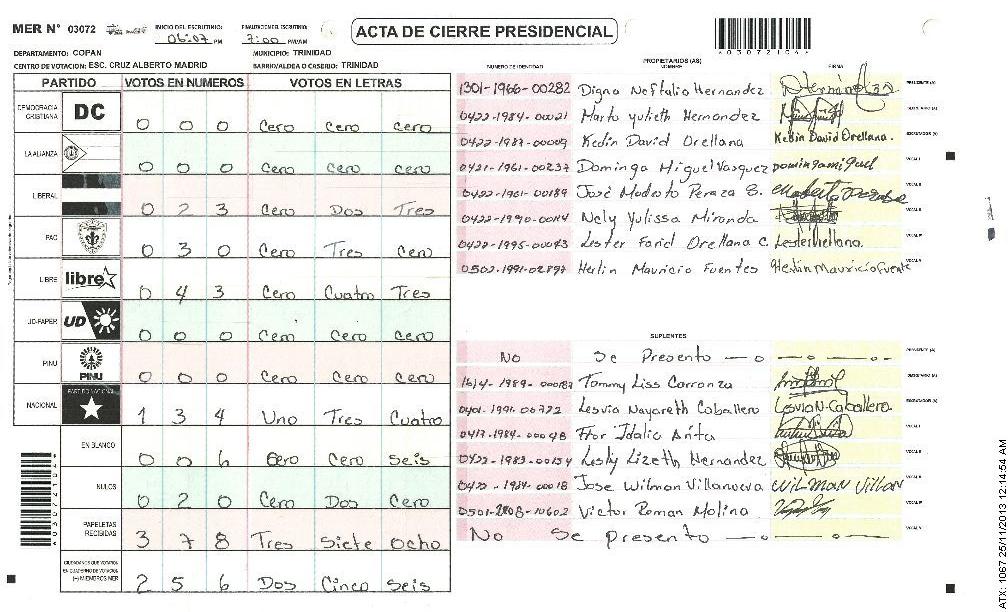 MER N° 03072
INICIO DEL ESCRUTINIO: 06:07 PM
FINALIZACION DEL ESCRUTINIO: 7:00 PM/AM
ACTA DE CIERRE PRESIDENCIAL
*03072104*
DEPARTAMENTO: COPAN
MUNICIPIO: TRINIDAD
CENTRO DE VOTACION: ESC. CRUZ ALBERTO MADRID
BARRIO/ALDEA O CASERIO: TRINIDAD
PARTIDO VOTOS EN NUMEROS VOTOS EN LETRAS
DEMOCRACIA CRISTIANA DC 0 0 0 Cero Cero Cero
LA ALIANZA 0 0 0 Cero Cero Cero
LIBERAL 0 2 3 Cero Dos Tres
PAC 0 3 0 Cero Tres Cero
LIBRE libre 0 4 3 Cero Cuatro Tres
UD-FAPER UD 0 0 0 Cero Cero Cero
PINU PINU 0 0 0 Cero Cero Cero
NACIONAL PARTIDO NACIONAL 1 3 4 Uno Tres Cuatro
EN BLANCO 0 0 6 Cero Cero Seis
NULOS 0 2 0 Cero Dos Cero
PAPELETAS RECIBIDAS 3 7 8 Tres Siete Ocho
CIUDADANOS QUE VOTARON EN CUADERNO DE VOTACION (+) MIEMBROS MER 2 5 6 Dos Cinco Seis
PROPIETARIOS (AS)
NUMERO DE IDENTIDAD NOMBRE FIRMA
1301-1966-00282 Digna Neftalio Hernandez PRESIDENTE (A)
0422-1984-00021 Marta yulieth Hernandez SECRETARIO (A)
0422-1987-00009 Kedin David Orellana Kedin David Orellana. ESCRUTADOR (A)
0421-1961-00237 Dominga Miguel Vasquez Domingamiguel VOCAL I
0422-1961-00189 José Modesto Peraza S. VOCAL II
0422-1990-00114 Nely Yulissa Miranda VOCAL III
0422-1995-00093 Lester Farid Orellana C. LesterOrellana. VOCAL IV
0502-1991-02897 Herlin Mauricio Fuentes Herlin Mauricio Fuente VOCAL V
SUPLENTES
No Se Presento PRESIDENTE (A)
1614-1989-000187 Tommy Liss Carranza SECRETARIO (A)
0401-1991-00772 Lesvia Nayareth Caballero Lesvia N. Caballero. ESCRUTADOR (A)
0417-1984-00048 Flor Idalia Arita VOCAL I
0422-1983-00134 Lesly Lizeth Hernandez VOCAL II
0422-1984-00018 Jose Wilman Villanueva WILMAN Villan VOCAL III
Victor Roman Molina VOCAL IV
No Se presento VOCAL V
*03072104*
ATX: 1067 25/11/2013 12:14:54 AM